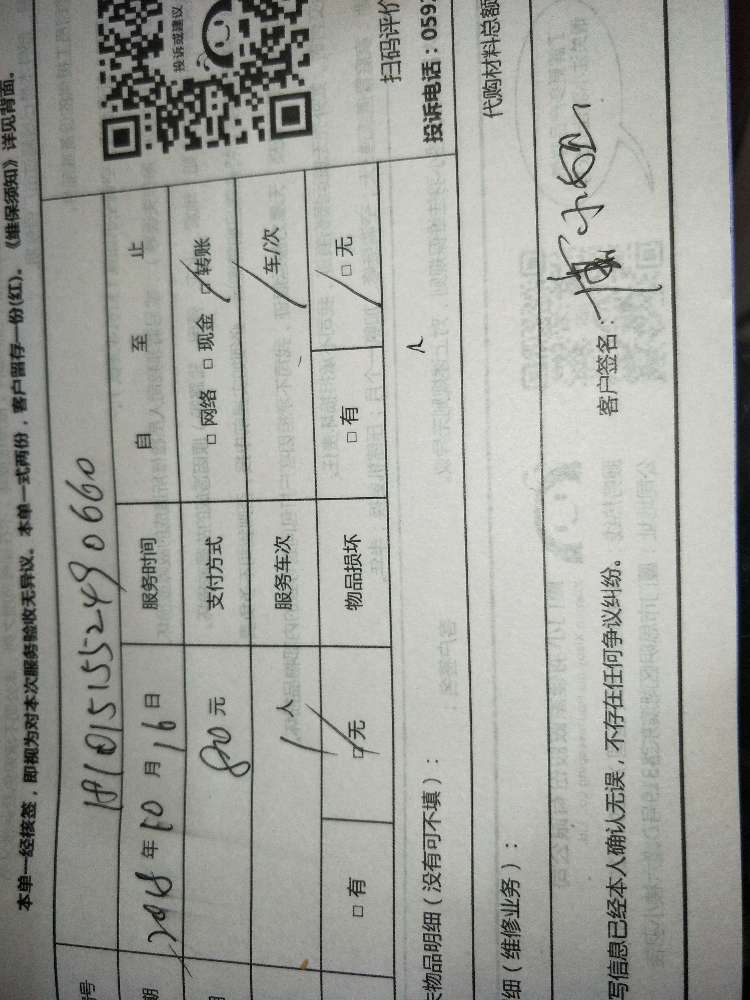 本单一经核签，即视为对本次服务验收无异议。本单一式两份，客户留存一份(红)。《维保须知》详见背面。
号 1810151552490660
期 2018年10月16日 服务时间 自 至 止
80元 支付方式 □网络 □现金 □转账
1人 服务车次 车/次
□有 □无 物品损坏 □有 □无
投诉或建议
扫码评价
投诉电话：0592
物品明细（没有可不填）：
代购材料总额
细（维修业务）：
写信息已经本人确认无误，不存在任何争议纠纷。 客户签名：